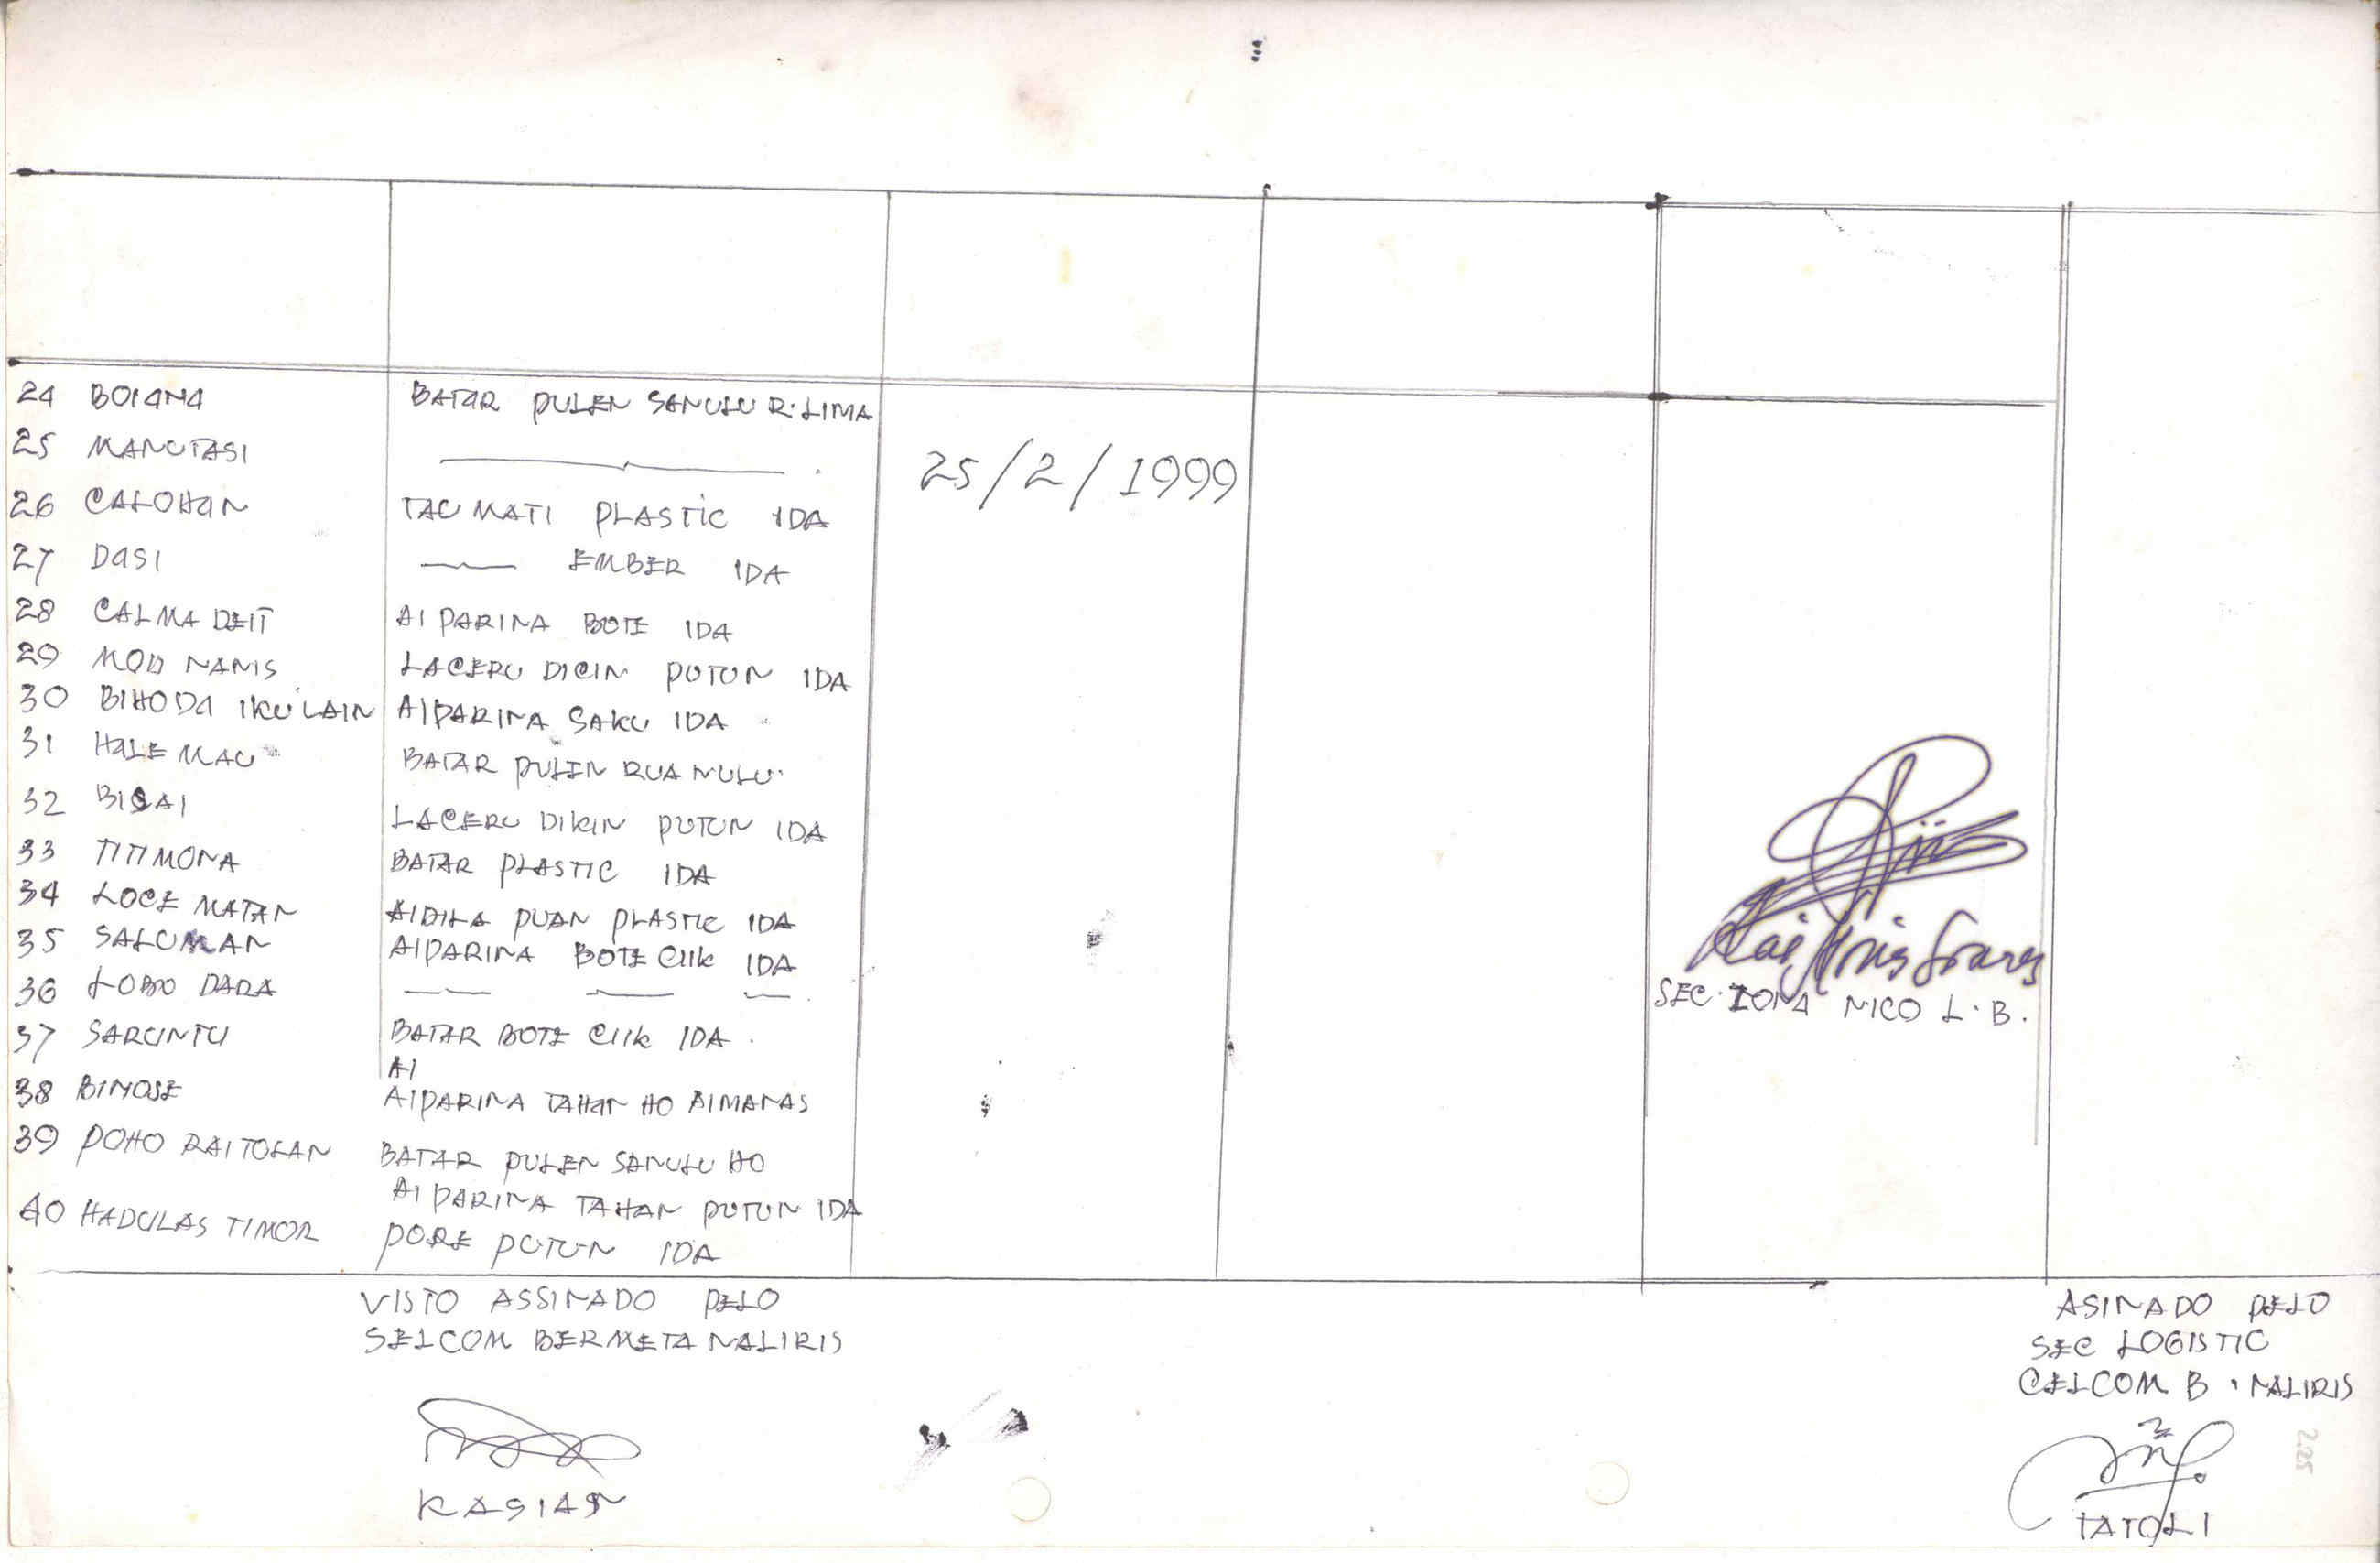 24 BOIANA BATAR PULEN SANULU R. LIMA
25 MANUTASI
25/2/1999
26 CALOHAN TAUMATI PLASTIC IDA
27 DASI EMBER IDA
28 CALMA DEIT AIPARINA BOTE IDA
29 MOU NANIS LACERU DICIN PUTUN IDA
30 BIHODA IKULAIN AIPARINA SAKU IDA
31 HALE MAU BATAR PULIN RUA NULU
32 BISAI LACERU DIKIN PUTUN IDA
33 TITIMONA BATAR PLASTIC IDA
34 LOCE MATAN AIDILA PUAN PLASTIC IDA
35 SALUMAN AIPARINA BOTE CIIK IDA
36 LOBO DARA
37 SARUNTU BATAR BOTE CIIK IDA.
AI
38 BIMOSE AIPARINA TAHAN HO AIMANAS
39 POHO RAITOLAN BATAR PULEN SANULU HO
AIPARINA TAHAN PUTUN IDA
40 HADULAS TIMOR PORE PUTUN IDA
Soares
SEC. ZONA NICO L. B.
VISTO ASSINADO PELO
SELCOM BERMETA NALIRIS
KASIAN
ASINADO PELO
SEC LOGISTIC
CELCOM B. NALIRIS
TATOLI
225